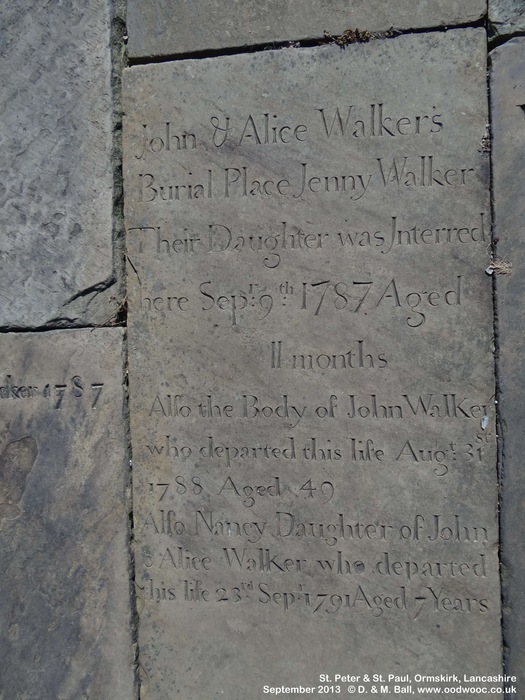 John & Alice Walkers
Burial Place Jenny Walker
Their Daughter was Interred
here Sepr. 9th. 1787 Aged
11 months
Also the Body of John Walker
who departed this life Augt. 31st
1788 Aged 49
Also Nancy Daughter of John
& Alice Walker who departed
this life 23rd Sepr. 1791 Aged 7 Years
1787
St. Peter & St. Paul, Ormskirk, Lancashire
September 2013 © D. & M. Ball, www.oodwooc.co.uk